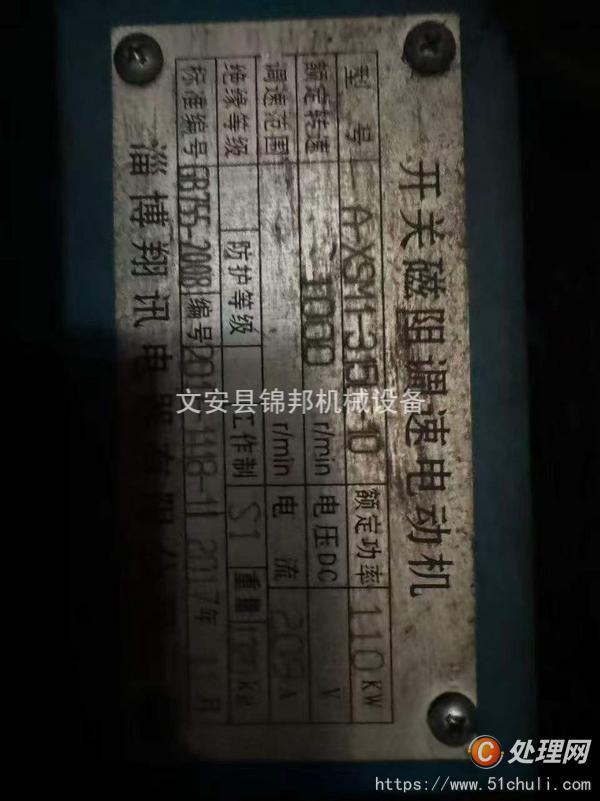 开关磁阻调速电动机
型号 A-XSM1-315 -10 额定功率 110 KW
额定转速 1000 r/min 电压DC V
调速范围 r/min 电流 A
绝缘等级 防护等级 工作制 S1 重量 Kg
标准编号 GB755-2008 编号 2017年 月
淄博翔讯电器有限
文安县锦邦机械设备
C 处理网
https://www.51chuli.com